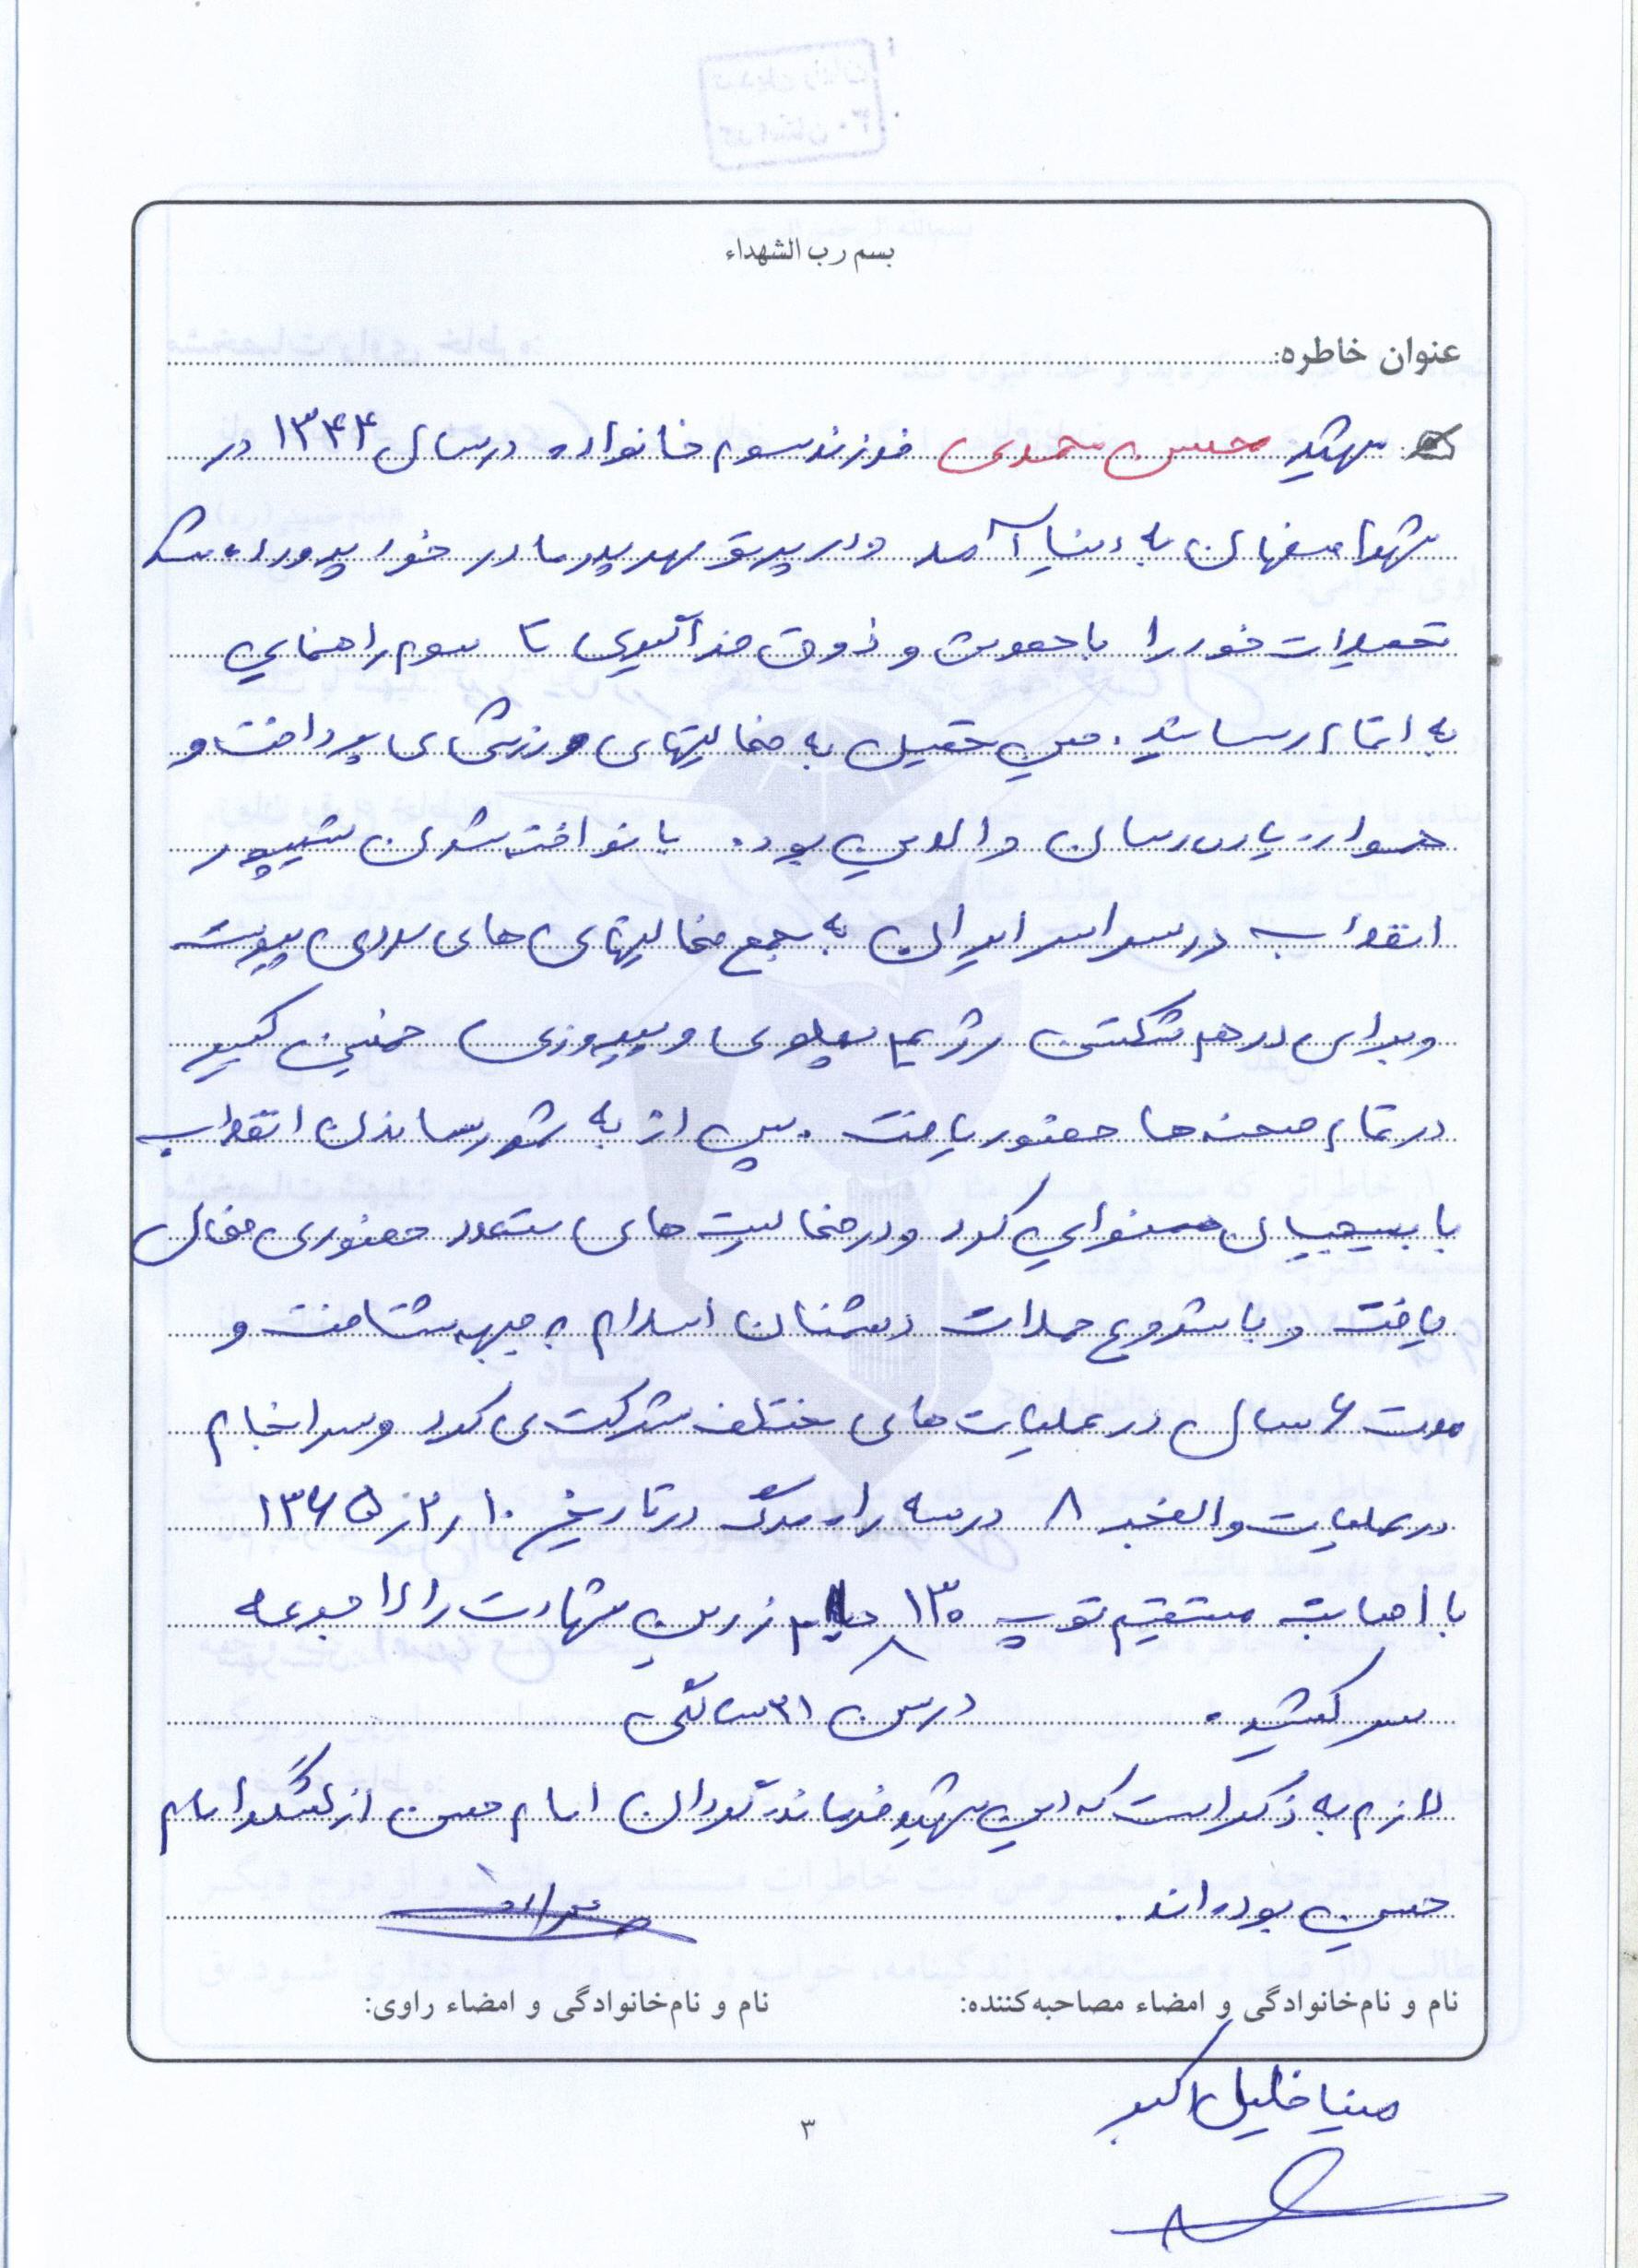 بسم رب الشهداء
عنوان خاطره:
شهید حسن محمدی فرزند سوم خانواده در سال ۱۳۴۴ در
شهر اصفهان به دنیا آمد و در پرتو مهر پدر مادر خود پرورده شد
تحصیلات خود را با و ذوق فراگیری تا سوم راهنمایی
به اتمام رساند. حین تحصیل به فعالیتهای ورزشی می پرداخت و
همواره یاری رسان والدین بود. با نواخته شدن شیپور
انقلاب در سراسر ایران به جمع فعالیتهای های پیوست
و برای در هم شکستن رژیم پهلوی و پیروزی خمینی کبیر
در تمام صحنه ها حضور یافت. پس از به ثمر رساندن انقلاب
با بسیجیان همنوایی کرد و در فعالیت های متعدد حضوری فعال
یافت و با شروع حملات دشمنان اسلام به جبهه شتافت و
مدت ۶ سال در عملیات های مختلف شرکت می کرد و سرانجام
در عملیات والفجر ۸ در سه راه مرگ در تاریخ ۱۰ ر ۳ ر ۱۳۶۵
با اصابت مستقیم توپ ۱۳۰ جام زرین شهادت را لاجرعه
سر کشید. در سن ۲۱ سالگی
لازم به ذکر است که این شهید فرمانده گردان امام حسن از لشگر امام
حسین بوده اند.
نام و نام‌خانوادگی و امضاء مصاحبه‌کننده: نام و نام‌خانوادگی و امضاء راوی:
مینا خلیل اکبر
۳